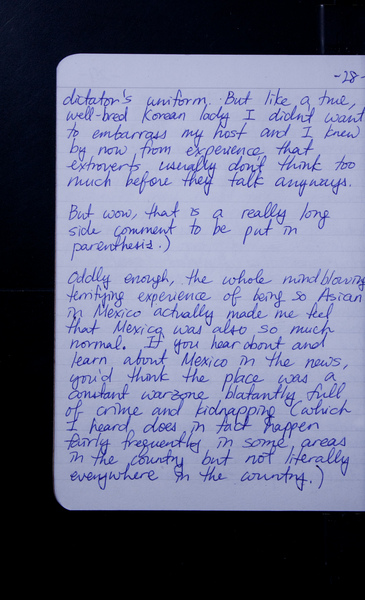 -28-
dictator's uniform. But like a true,
well-bred Korean lady I didn't want
to embarrass my host and I knew
by now from experience that
extroverts usually don't think too
much before they talk anyways.
But wow, that is a really long
side comment to be put in
parenthesis.)
Oddly enough, the whole mindblowing
terrifying experience of being so Asian
in Mexico actually made me feel
that Mexico was also so much
normal. If you hear about and
learn about Mexico in the news,
you'd think the place was a
constant warzone blatantly full
of crime and kidnapping (which
I heard does in fact happen
fairly frequently in some areas
in the country but not literally
everywhere in the country.)